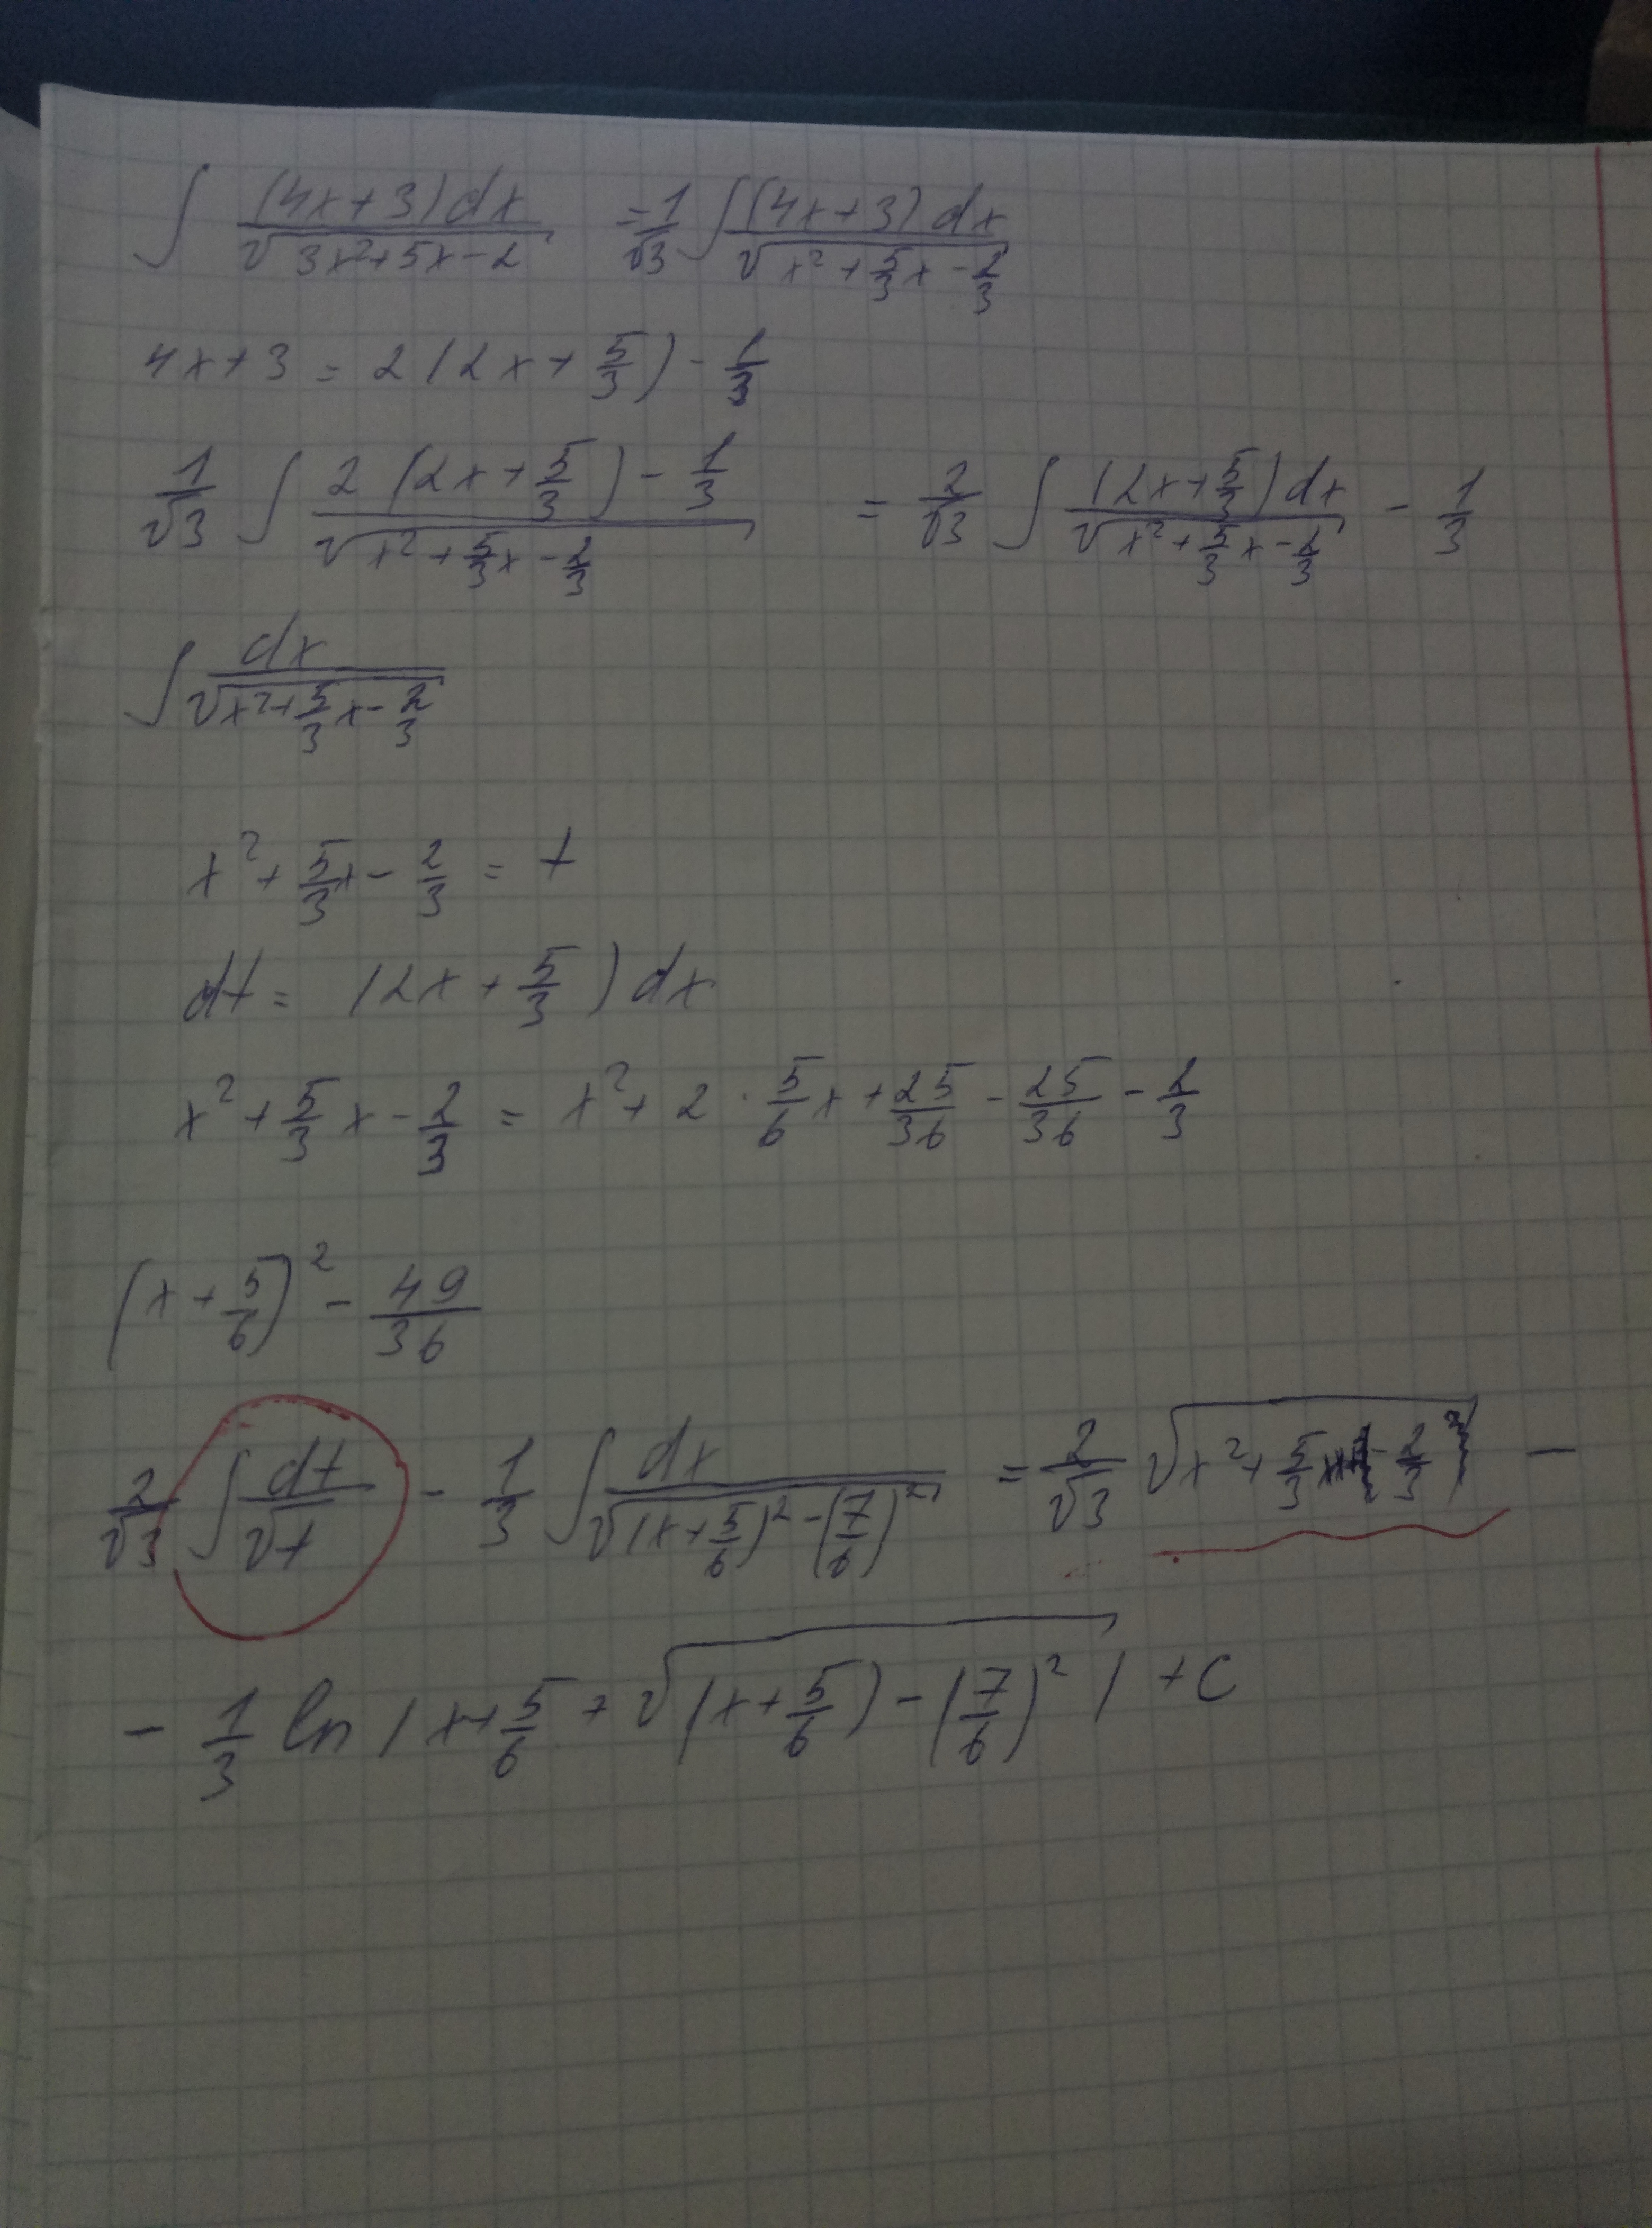 ∫ (4x+3)dx / √(3x²+5x-2) = 1/√3 ∫ (4x+3)dx / √(x² + 5/3 x - 2/3)
4x+3 = 2(2x + 5/3) - 1/3
1/√3 ∫ (2(2x + 5/3) - 1/3) / √(x² + 5/3 x - 2/3) = 2/√3 ∫ (2x + 5/3)dx / √(x² + 5/3 x - 2/3) - 1/3
∫ dx / √(x² + 5/3 x - 2/3)
x² + 5/3 x - 2/3 = t
dt = (2x + 5/3)dx
x² + 5/3 x - 2/3 = x² + 2 · 5/6 x + 25/36 - 25/36 - 2/3
(x + 5/6)² - 49/36
2/√3 ∫ dt/√t - 1/3 ∫ dx / √((x + 5/6)² - (7/6)²) = 2/√3 √(x² + 5/3 x - 2/3) -
- 1/3 ln |x + 5/6 + √((x + 5/6) - (7/6)²)| + C